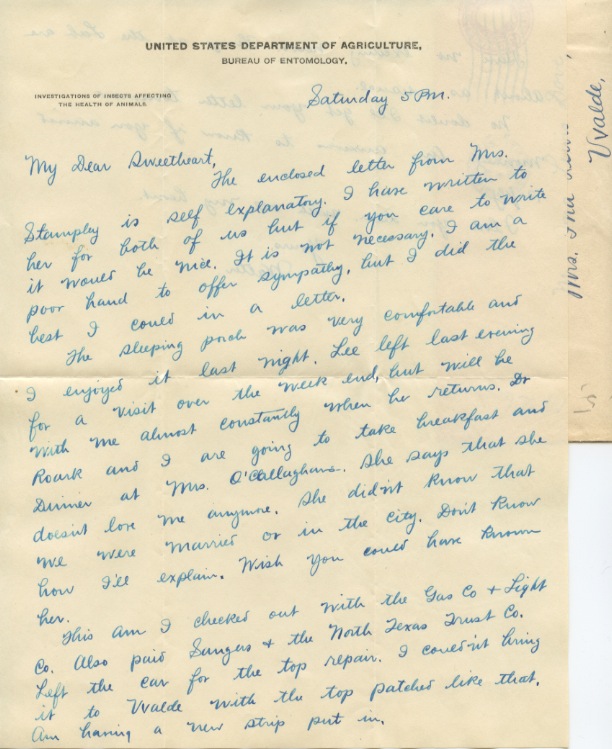 UNITED STATES DEPARTMENT OF AGRICULTURE,
BUREAU OF ENTOMOLOGY.
INVESTIGATIONS OF INSECTS AFFECTING
THE HEALTH OF ANIMALS
Saturday 5 P.M.
My Dear Sweetheart,
The enclosed letter from Mrs.
Stampley is self explanatory. I have written to
her for both of us but if you care to write
it would be nice. It is not necessary. I am a
poor hand to offer sympathy, but I did the
best I could in a letter.
The sleeping porch was very comfortable and
I enjoyed it last night. Lee left last evening
for a visit over the week end, but will be
with me almost constantly when he returns. Dr
Roark and I are going to take breakfast and
Dinner at Mrs. O'Callaghans. She says that she
doesn't love me anymore. She didn't know that
we were married or in the city. Don't know
how I'll explain. Wish you could have known
her.
This am I checked out with the Gas Co & Light
Co. Also paid Sangus & the North Texas Trust Co.
Left the car for the top repair. I couldn't bring
it to Uvalde with the top patched like that.
Am having a new strip put in.
Mrs.
Uvalde,